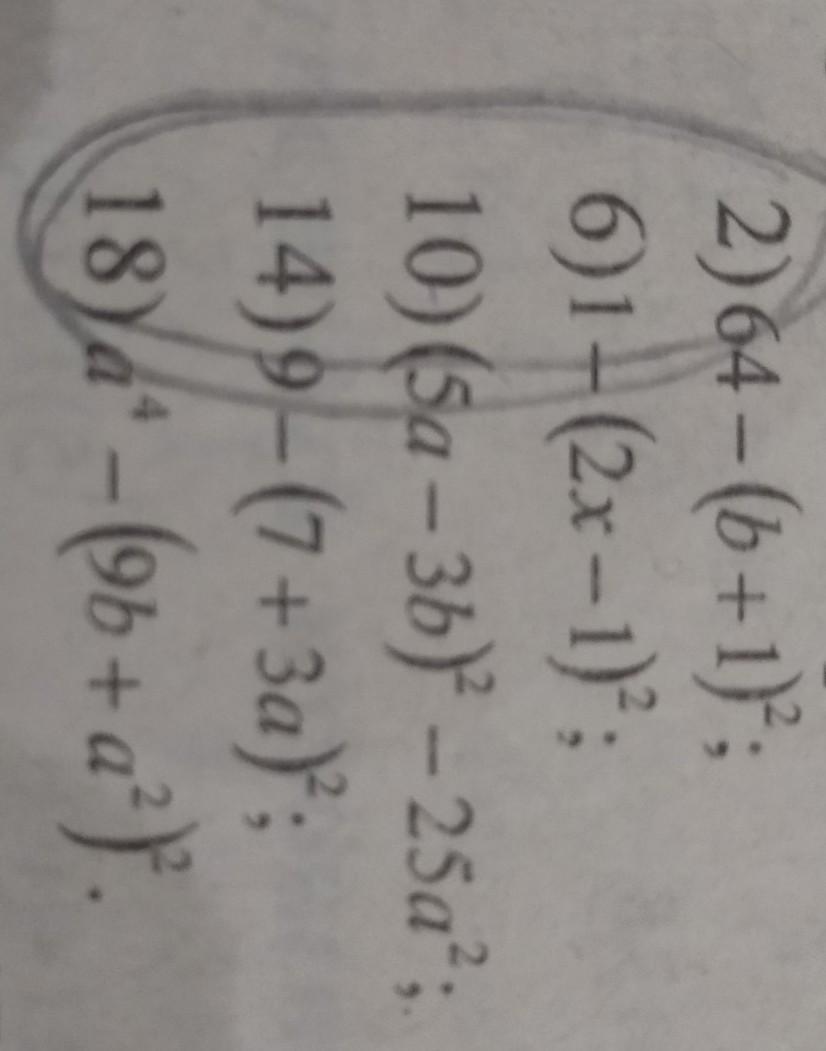 2) 64 − (b + 1)²;
6) 1 − (2x − 1)²;
10) (5a − 3b)² − 25a²;
14) 9 − (7 + 3a)²;
18) a⁴ − (9b + a²)².